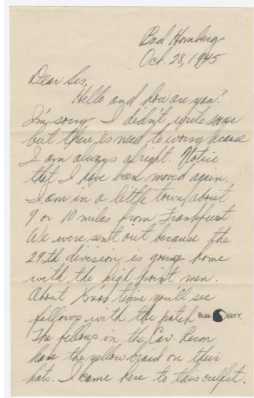 Bad Homberg
Oct. 28, 1945
Dear Sis,
Hello and how are you?
I'm sorry I didn't write sooner
but there is no need to worry because
I am always alright. Notice
that I have been moved again.
I am in a little town about
9 or 10 miles from Frankfurst.
We were sent out because the
29th division is going home
with the high point men.
About Xmas time you'll see
fellows with the patch BLUE GREY.
The fellows in the Cav. Recon
have the yellow braid on their
hats. I came here to this outfit.